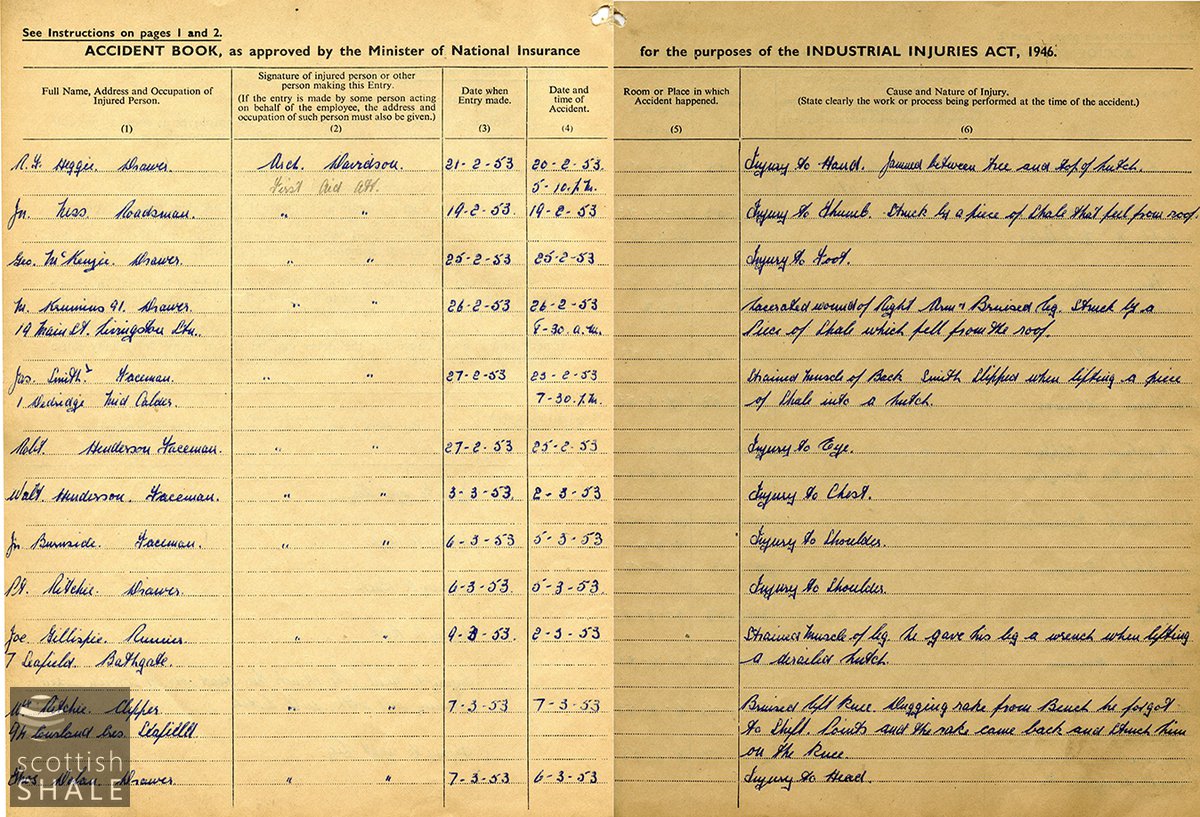 See Instructions on pages 1 and 2.
ACCIDENT BOOK, as approved by the Minister of National Insurance for the purposes of the INDUSTRIAL INJURIES ACT, 1946.
Full Name, Address and Occupation of Injured Person.
(1)
Signature of injured person or other person making this Entry.
(If the entry is made by some person acting on behalf of the employee, the address and occupation of such person must also be given.)
(2)
Date when Entry made.
(3)
Date and time of Accident.
(4)
Room or Place in which Accident happened.
(5)
Cause and Nature of Injury.
(State clearly the work or process being performed at the time of the accident.)
(6)
Heggie. Drawer. Arch. Davidson. 21-2-53 20-2-53. Injury to Hand. Jammed between tree and top of hutch.
First Aid Att. 5-10.p.m.
Jn. Ness. Roadsman. " " 19-2-53. 19-2-53 Injury to Thumb. Struck by a piece of Shale that fell from roof.
Geo. McKenzie. Drawer. " " 25-2-53 25-2-53 Injury to Foot.
M. Krumins 91. Drawer " " 26-2-53 26-2-53 Lacerated wound of Right Arm & Bruised leg. Struck by a
19 Main St. Livingston Stn. 8-30.a.m. Piece of Shale which fell from the roof.
Jas. Smith. Faceman. " " 27-2-53 25-2-53 Strained muscle of Back Smith Slipped when lifting a piece
1 Dedridge Mid Calder. 7-30.p.m. of Shale into a hutch.
Robt. Henderson Faceman. " " 27-2-53 25-2-53 Injury to Eye.
Walt. Henderson. Faceman. " " 3-3-53. 2-3-53 Injury to Chest.
Jn Burnside. Faceman. " " 6-3-53 5-3-53 Injury to Shoulder.
Pt. Ritchie. Drawer. 6-3-53 5-3-53. Injury to Shoulder.
Joe. Gillispie. Runner. " " 9-3-53. 2-3-53 " Strained muscle of leg. he gave his leg a wrench when lifting
7 Seafield. Bathgate. a derailed hutch.
Wm Ritchie. Clipper " " 7-3-53 7-3-53 Bruised left Knee. Dugging rake from Bench he forgot
94 Cousland Cres. Seafield. to Shift Points and the rake came back and Struck him
on the Knee.
Thos. Dolan Drawer " " 7-3-53 6-3-53 Injury to Head.
scottish
SHALE